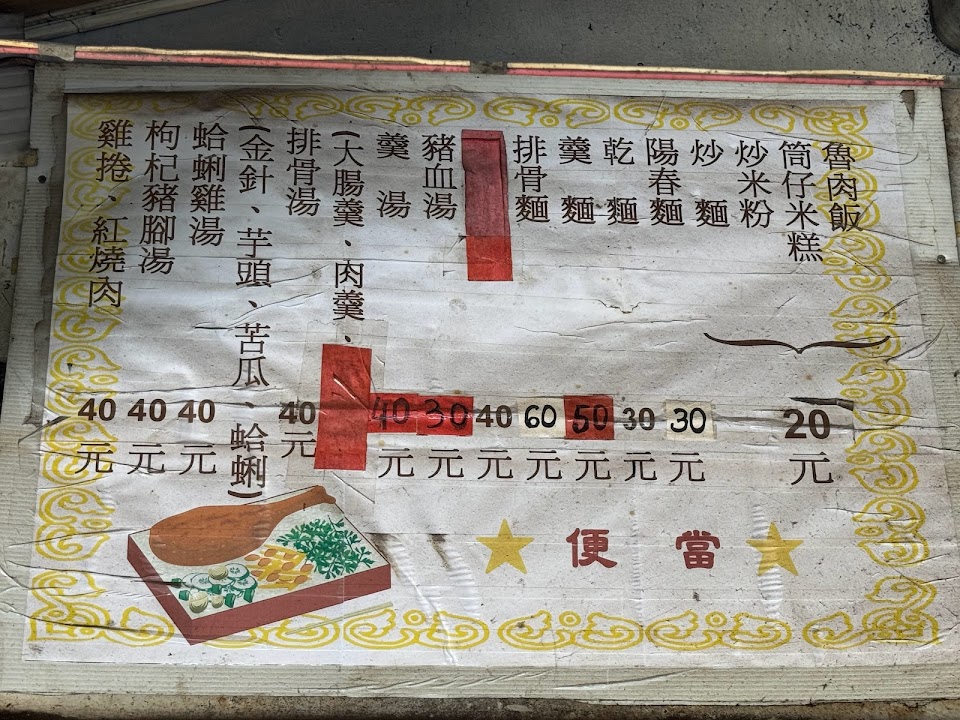 魯肉飯
筒仔米糕
炒米粉
炒麵
20元
陽春麵 30元
乾麵 30元
羹麵 50元
排骨麵 60元
40元
豬血湯 30元
羹湯 40元
(大腸羹、肉羹、
排骨湯 40元
(金針、芋頭、苦瓜、蛤蜊)
蛤蜊雞湯 40元
枸杞豬腳湯 40元
雞捲、紅燒肉 40元
便當